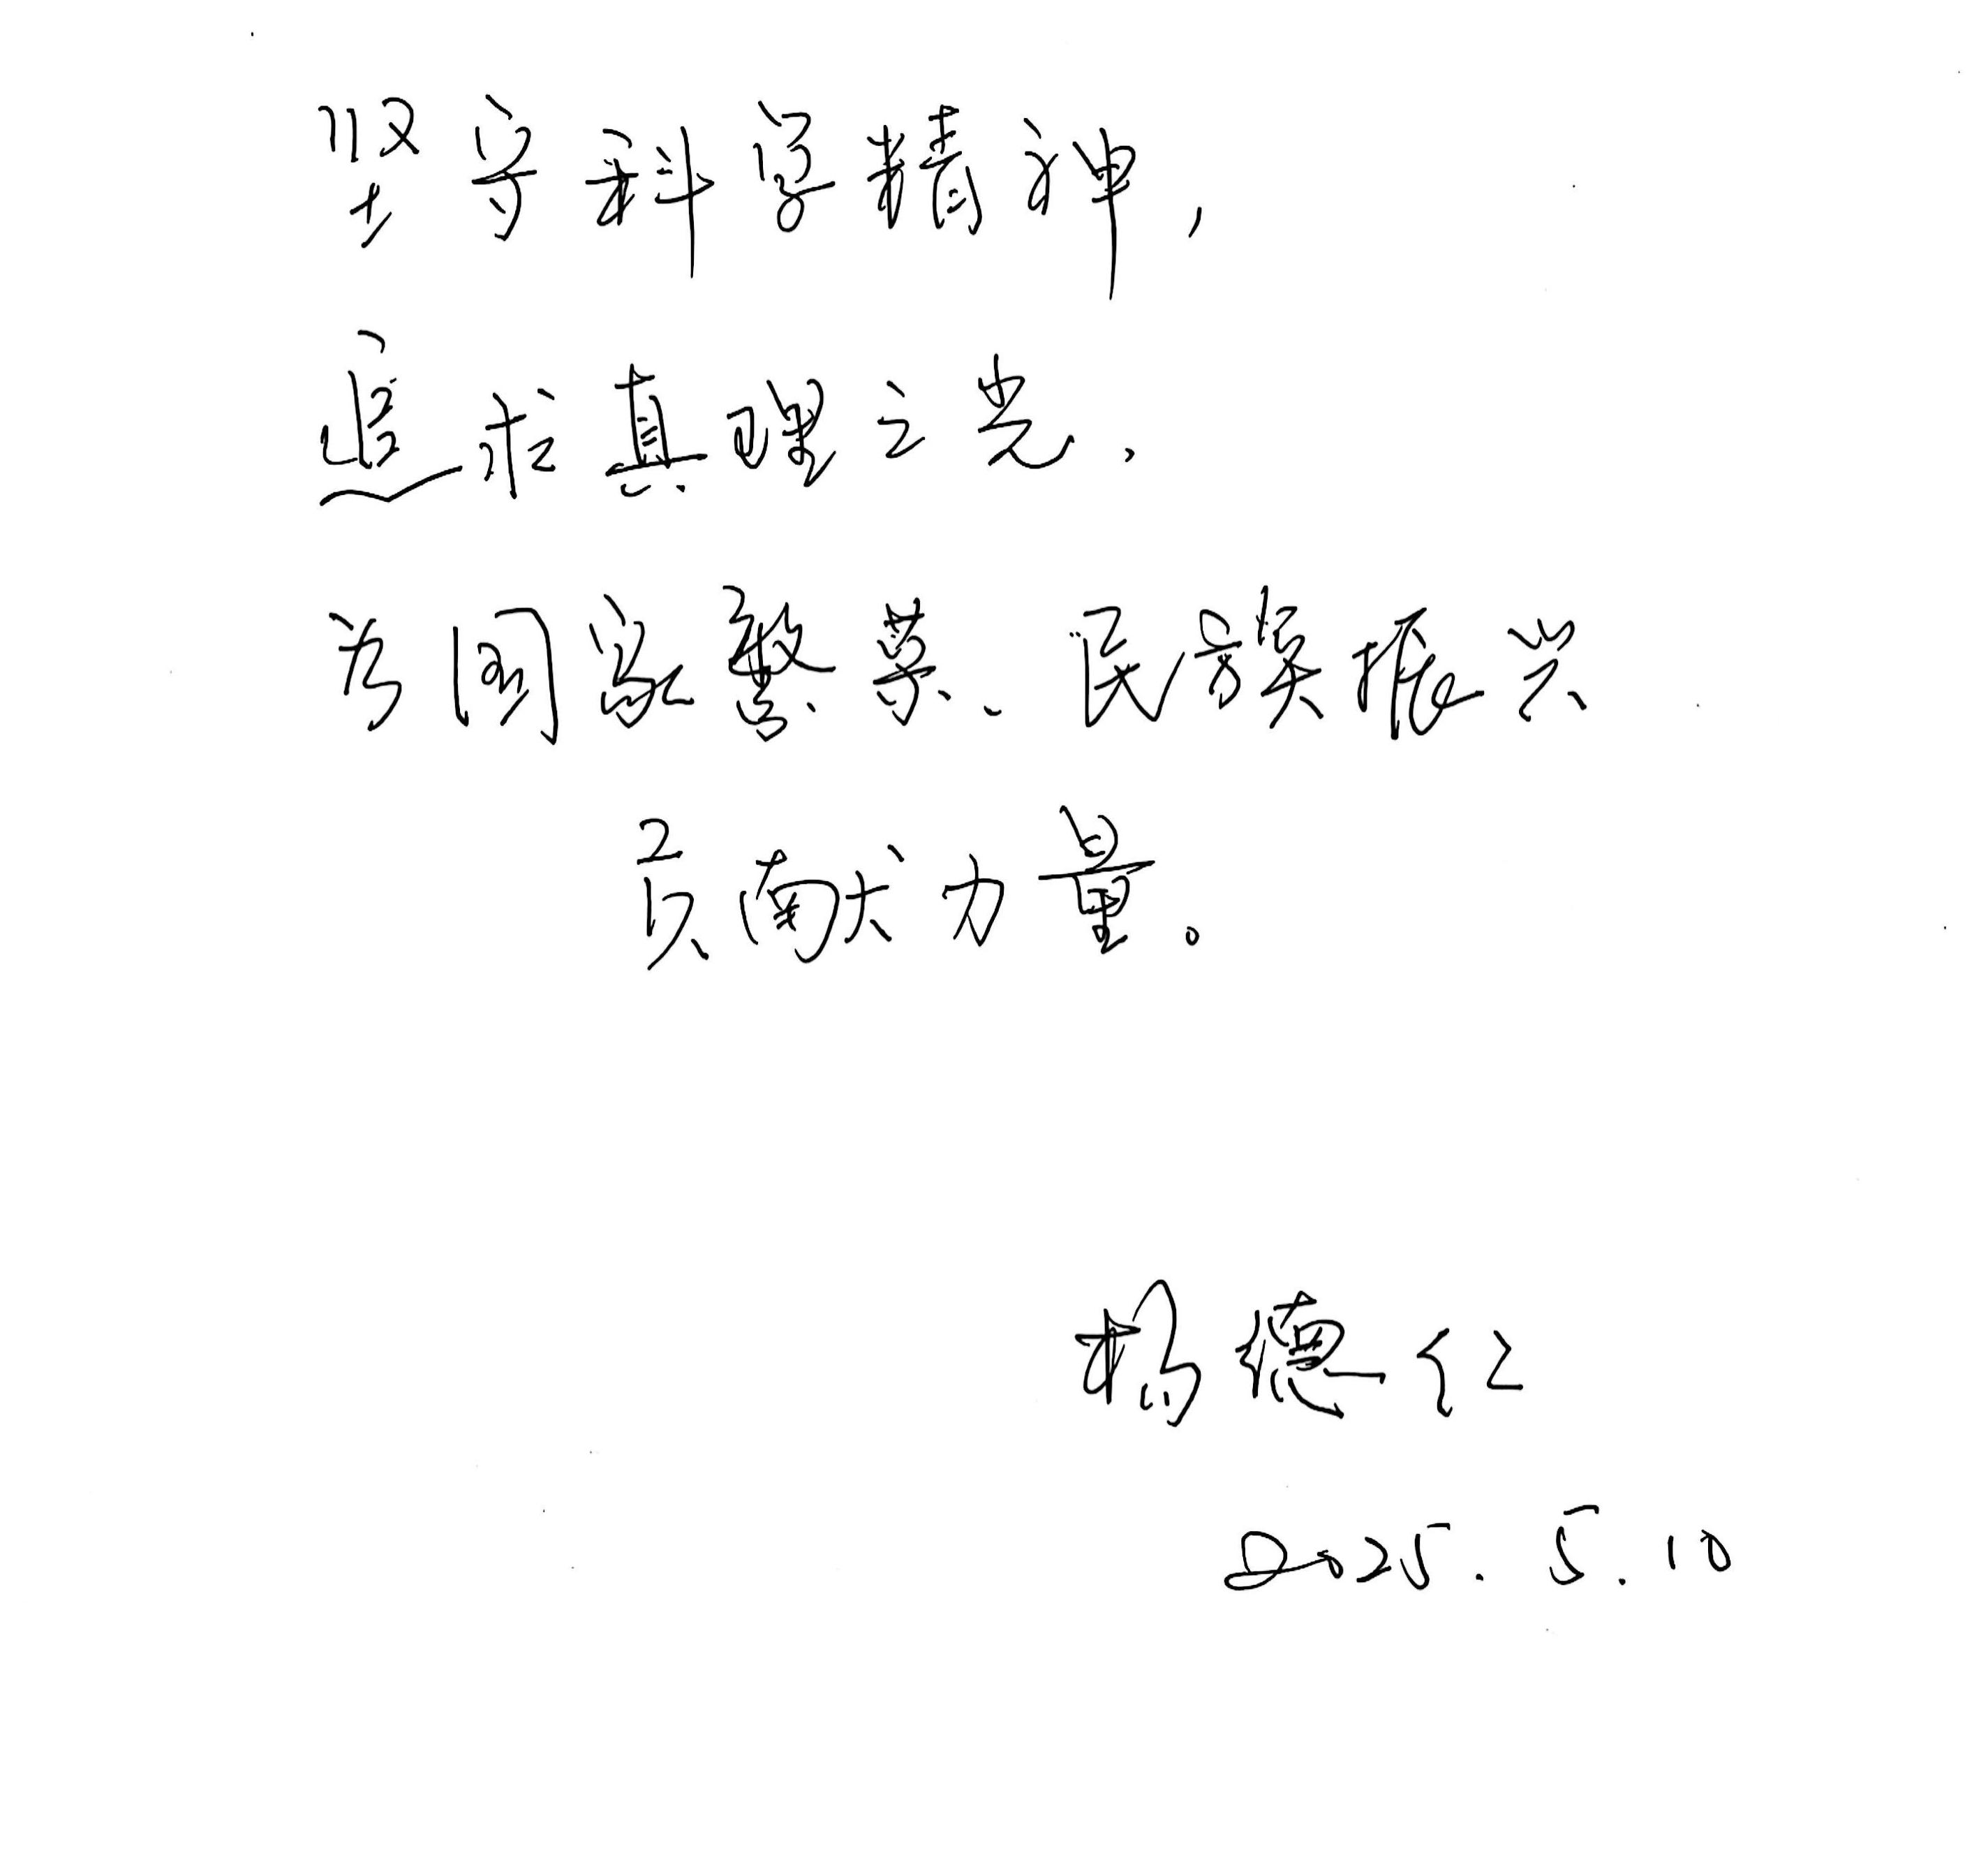 坚守科学精神，
追求真理之光，
为国家繁荣、民族振兴
贡献力量。
杨德仁
2025.5.10